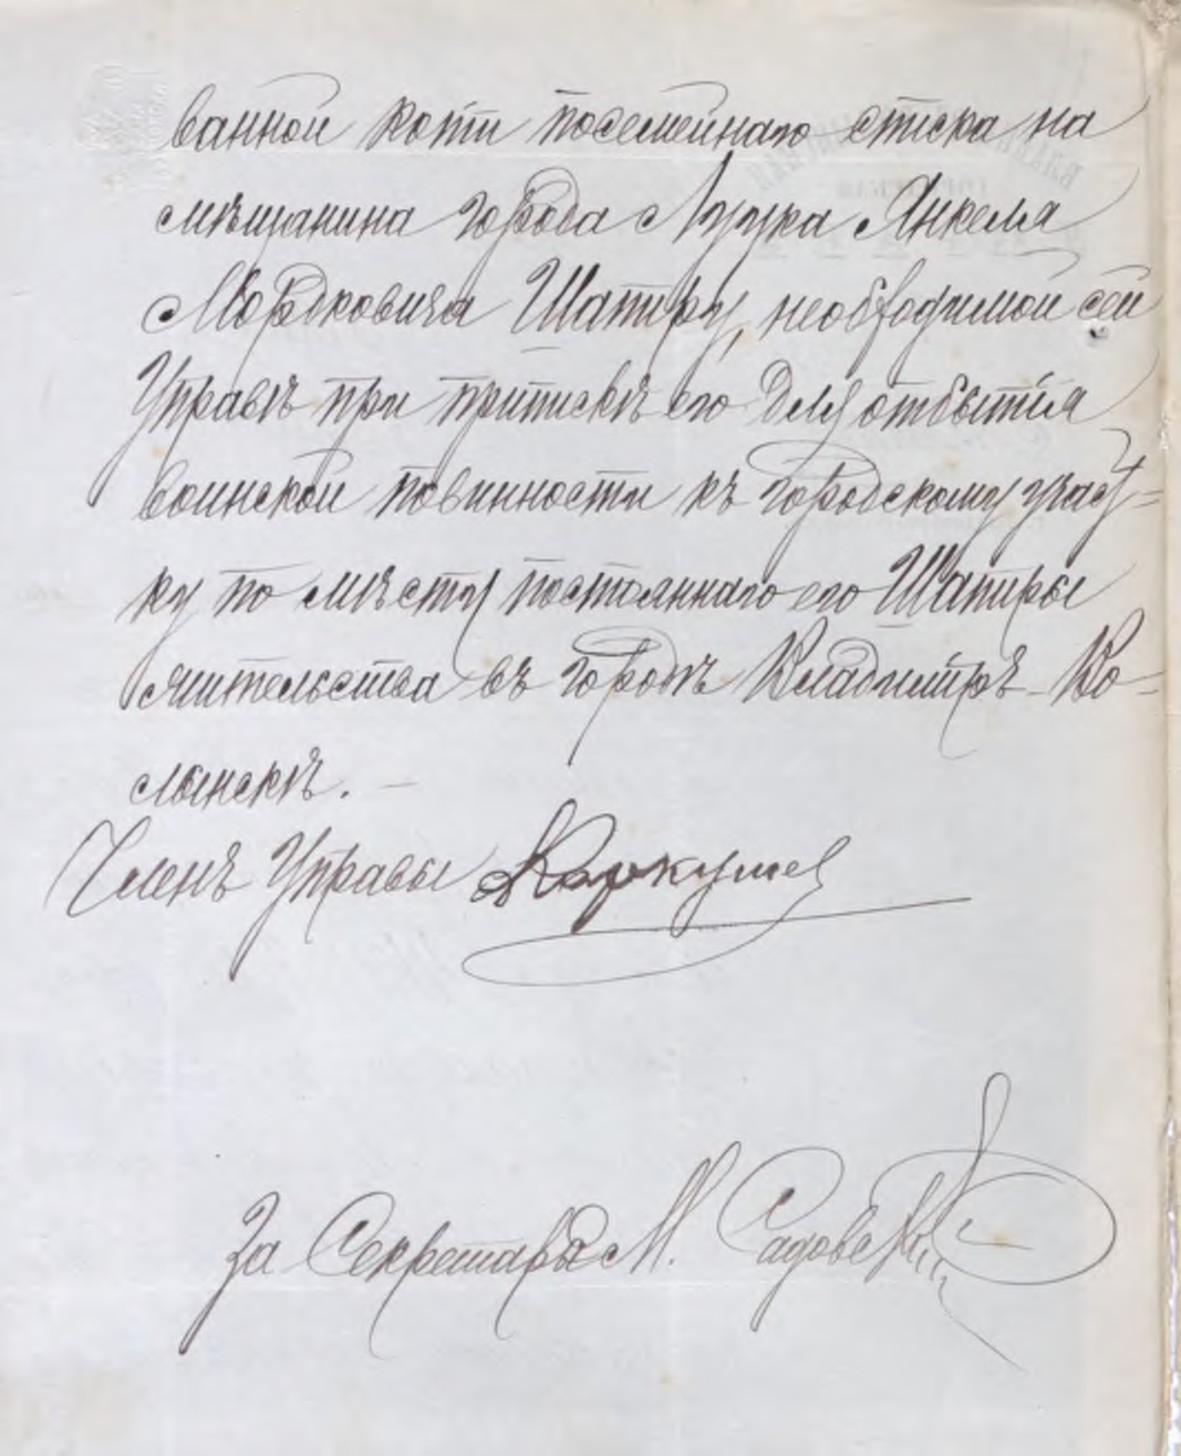 ванной копiи посемейнаго списка на
мѣщанина города Луцка Янкеля
Мордковича Шапиру, необходимой сей
Управѣ при припискѣ его для отбытiя
воинской повинности къ городскому учас-
ку по мѣсту постояннаго его Шапиры
жительства въ городѣ Владимiрѣ-Во-
лынскѣ.
Членъ Управы
За Секретаря М. Садовскiй